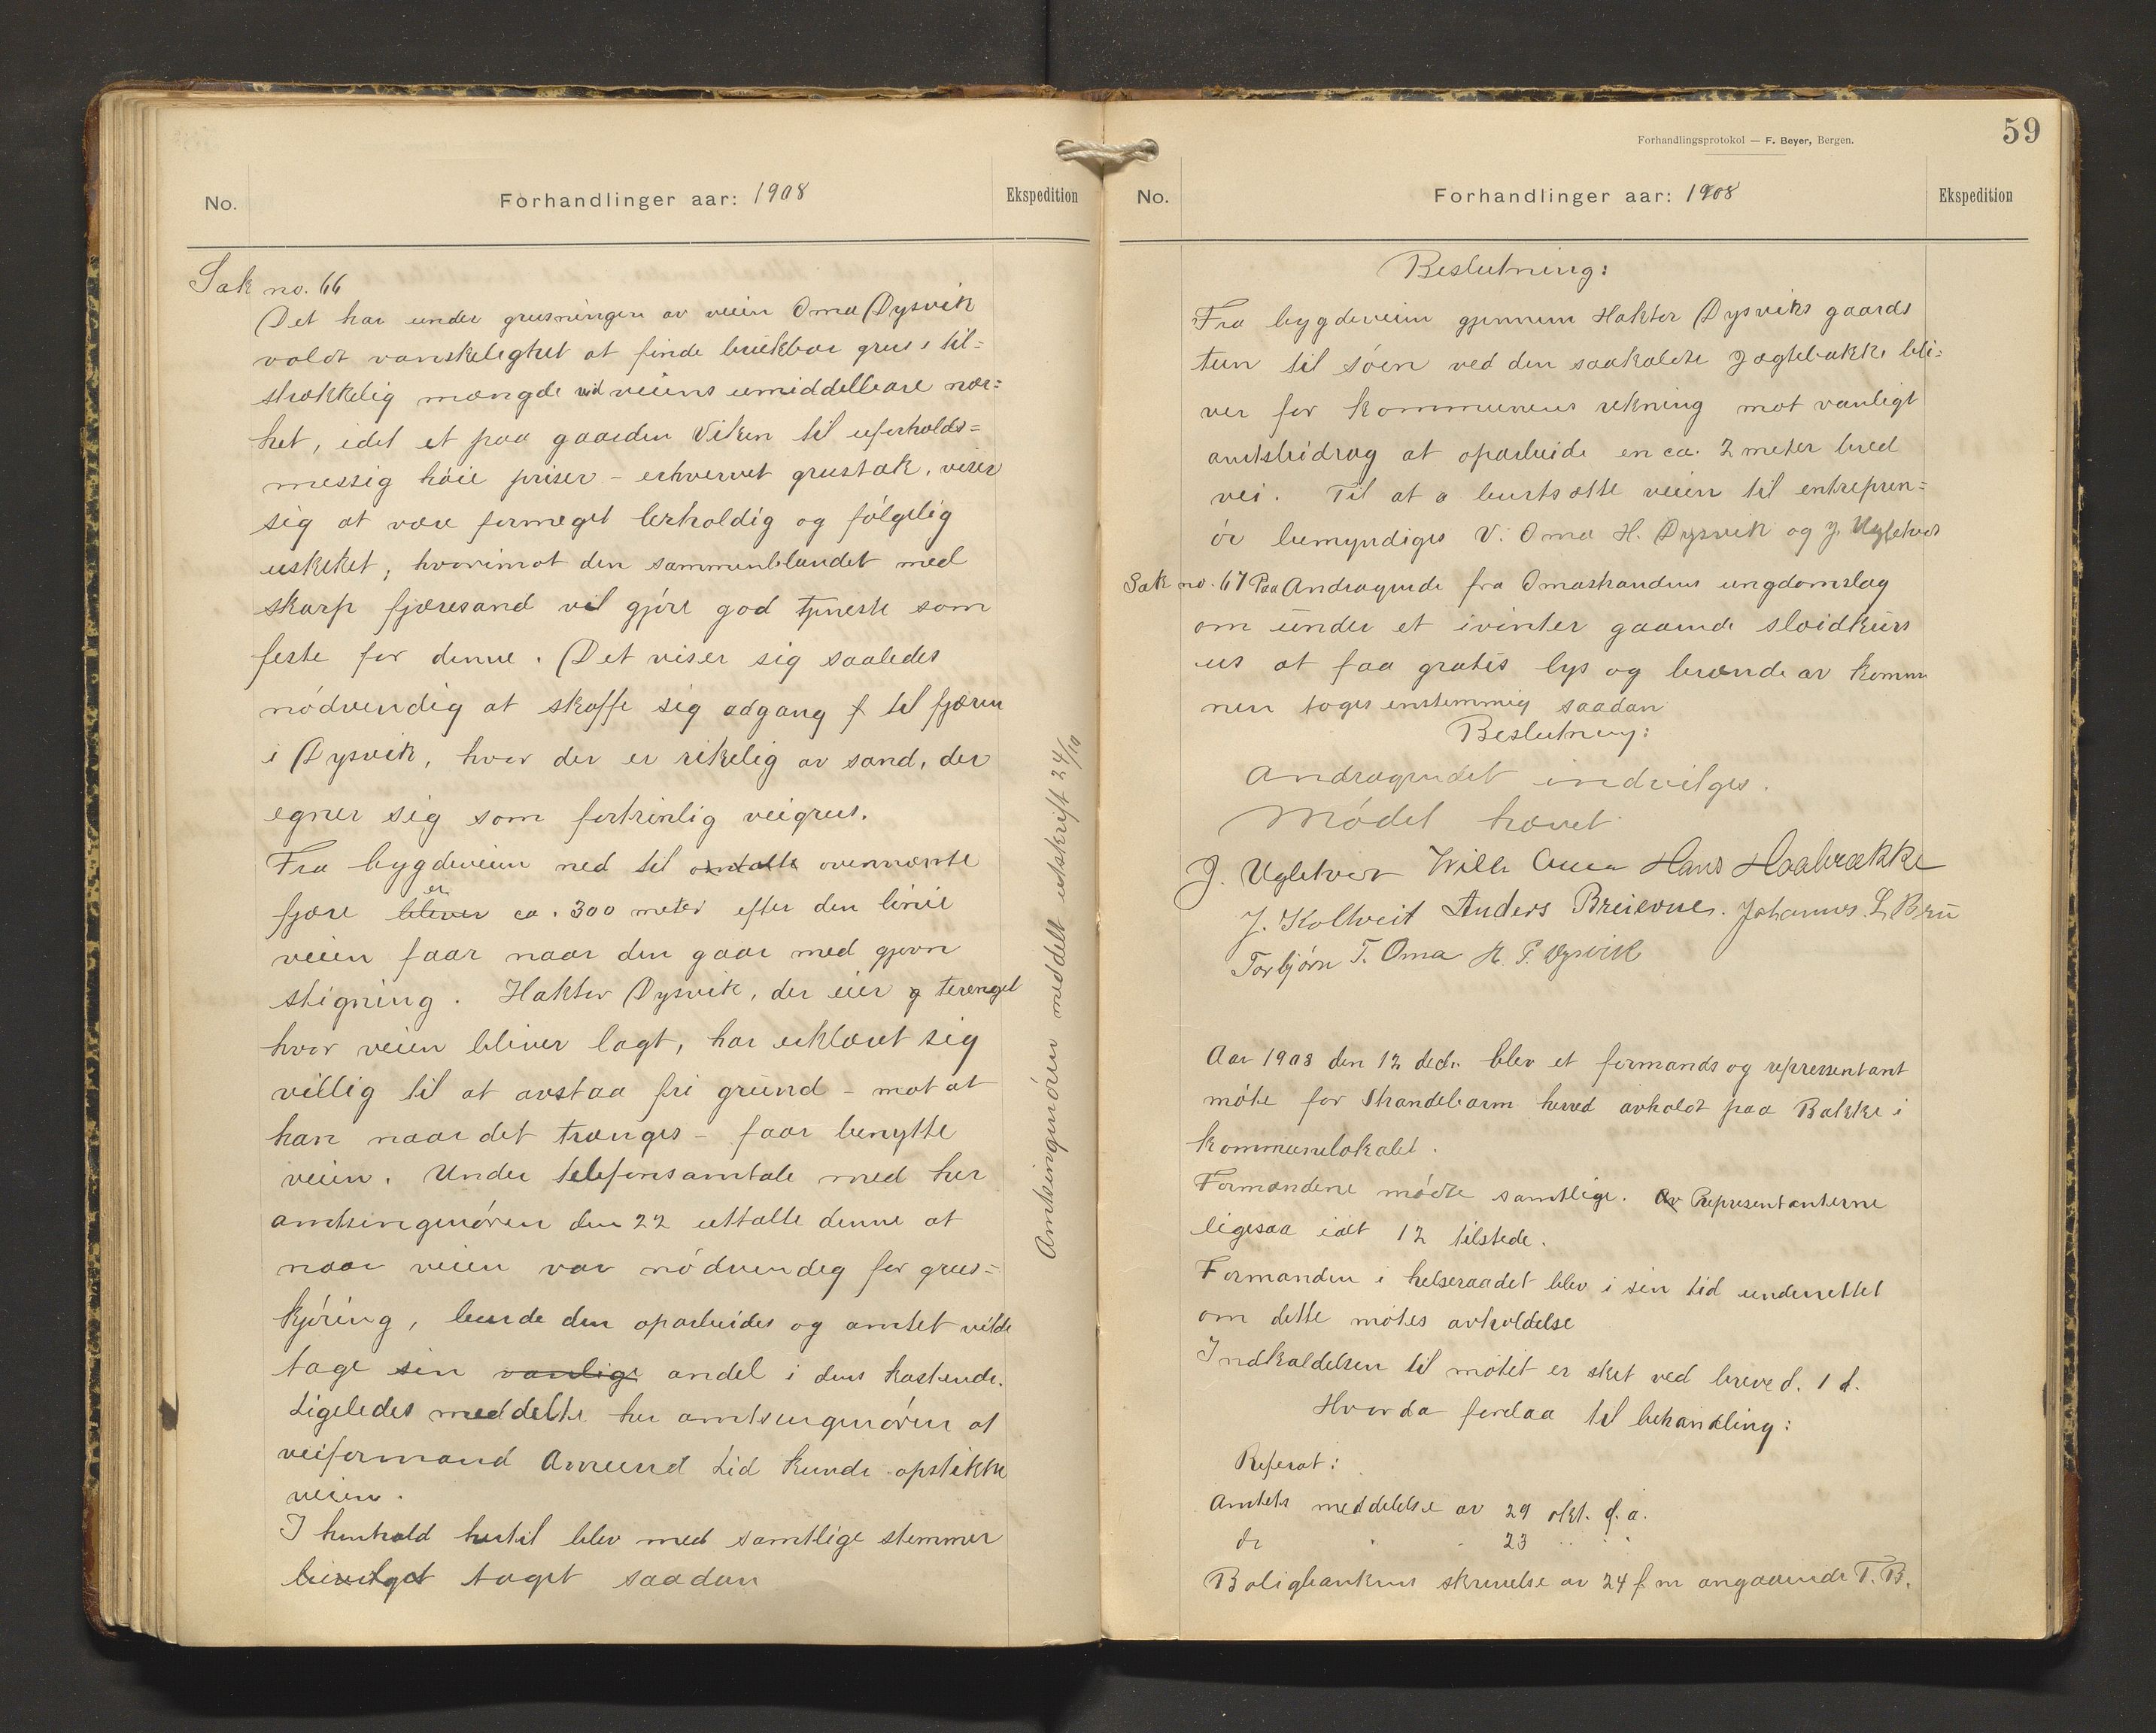 No.
Forhandlinger aar: 1908
Ekspedition
Sak no. 66
Det har under grusningen av veien Oma Dysvik
voldt vanskelighet at finde brukbar grus i til=
strækkelig mængde ved veiens umiddelbare nær=
het, idet et paa gaarden Viken til uforholds=
messig høie priser - erhvervet grustak, viser
sig at være formeget lerholdig og følgelig
uskiket, hvorimot den sammenblandet med
skarp fjæresand vil gjøre god tjeneste som
feste for denne. Det viser sig saaledes
nødvendig at skaffe sig adgang f til fjæren
i Dysvik, hvor der er rikelig av sand, der
egner sig som fortrinlig veigrus.
Fra bygdeveien ned til omtalte ovennævnte
fjære bliver er ca. 300 meter efter den linie
veien faar naar den gaar med gjevn
stigning. Haktor Dysvik, der eier terænget
hvor veien bliver lagt, har erklæret sig
villig til at avstaa fri grund - mot at
han naar det trænges - faar benytte
veien. Under telefonsamtale med her
amtsingeniøren den 22 uttalte denne at
naar veien var nødvendig for grus=
kjøring, burde den oparbeides og amtet vilde
tage sin vanlige andel i dens kostende.
Ligeledes meddelte her amtsingeniøren at
veiformand Amund Lid kunde opstikke
veien.
I henhold hertil blev med samtlige stemmer
bevilget taget saadan
Amtsingeniøren meddelt utskrift 24/10
Forhandlingsprotokol — F. Beyer, Bergen.
59
No.
Forhandlinger aar: 1908
Ekspedition
Beslutning:
Fra bygdeveien gjennem Haktor Dysviks gaards
tun til søen ved den saakaldte Jægtebakke bli=
ver for kommunens rekning mot vanligt
amtsbidrag at oparbeide en ca. 2 meter bred
vei. Til at a bortsætte veien til entrepren=
ør bemyndiges V. Oma H. Dysvik og J. Ugletveit
Sak no. 67 Paa Andragende fra Omastrandens ungdomslag
om under et ivinter gaaende sløidkurs
us at faa gratis lys og brænde av kommu
nen toges enstemmig saadan
Beslutning:
Andragendet indvilges.
Mødet hævet
J. Ugletveit Will Oma Hans Haabrække
J. Koltveit Anders Breievne. Johannes L Bru
Torbjørn T. Oma H. P. Dysvik
Aar 1908 den 12 decbr. blev et formands og repressentant
møte for Strandebarm herred avholdt paa Bakke i
kommunelokalet.
Formændene mødte samtlige. Av Representanterne
ligesaa ialt 12 tilstede.
Formanden i helseraadet blev i sin tid underrettet
om dette møtes avholdelse
Indkaldelsen til møtet er sket ved brev d. 1 d.
Hvorda forelaa til behandling:
Referat:
Amtets meddelelse av 29 okt. d. a.
do " " 23 " " "
Boligbankens skrivelse av 24 f. m angaaende T. B.